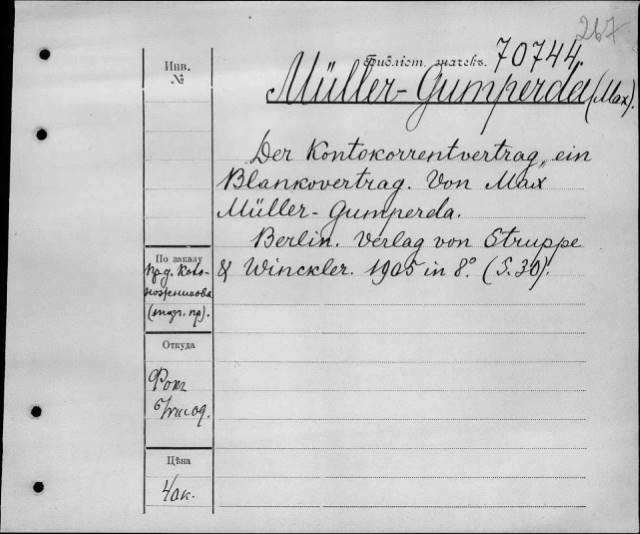 267
Библіот. значекъ. 70744.
Инв.
№
Müller-Gumperda (Max).
Der Kontokorrentvertrag, ein
Blankovertrag. Von Max
Müller-Gumperda.
Berlin. Verlag von Struppe
& Winckler. 1905 in 8º. (S. 30).
По заказу
(торг. пр).
Откуда
Цѣна
40к.